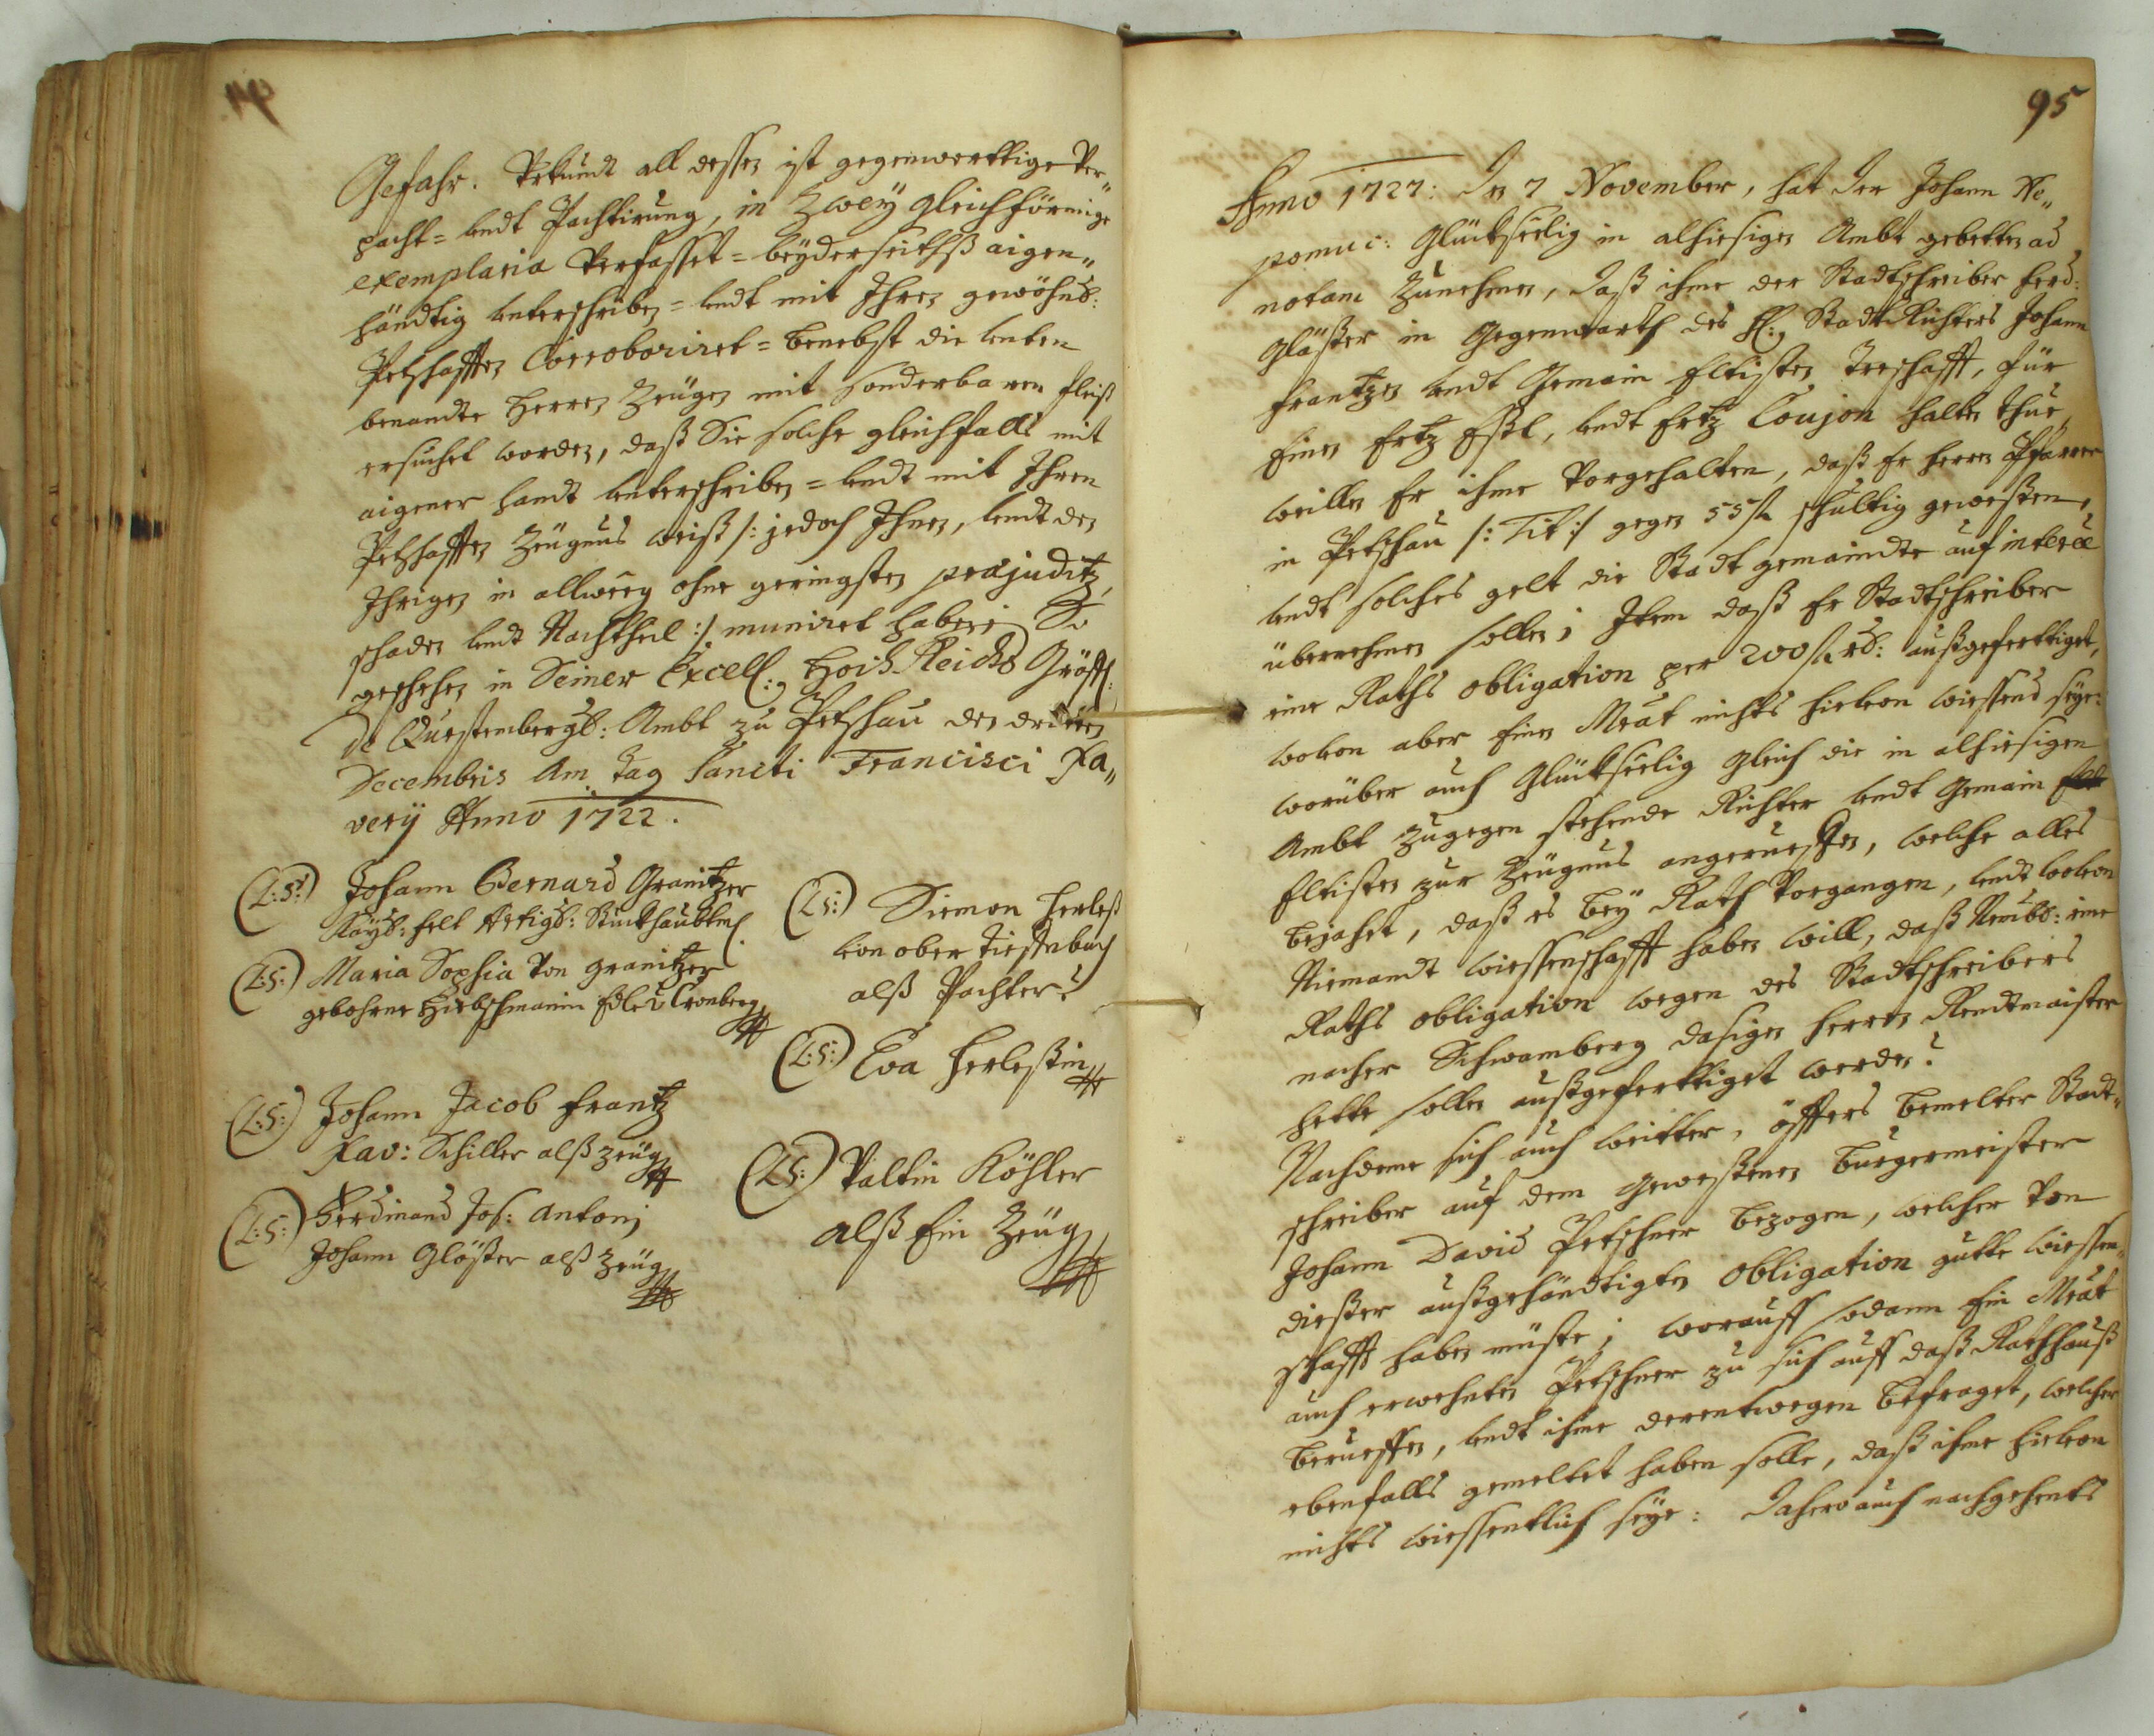 Gefahr. Urkundt all dessen ist gegenwerttige Ver„
pacht= undt Pachtirung, in Zweÿ gleichförmige
exemplaria Verfasset= beÿderseithß aigen„
händtig unterschriben= undt mit Ihren gewöhnl:
Petschafften Corroboriret= benebst die unten
benandte Herren Zeügen mit sonderbaren fleiß
ersuchet worden, daß Sie solche gleichfalls mit
aigener handt unterschriben= undt mit Ihren
Petschafften Zeügnus weiß /: jedoch Ihnen, undt den
Ihrigen in allweeg ohne geringsten præjuditz,
schaden undt Nachtheil :/ muniret haben; So
geschehen in Seiner Excell: Hoch Reichs Gräffl:
v. Questembergl: Ambt zu Petschau den dritten
Decembris Am Tag Sancti Francisci Xa„
verÿ Anno 1722.
(L:S:) Johann Bernard Granitzer
Kaÿl: Felt Artigl: Stuckhaubtm.
(L:S:) Maria Sophia Von Granitzer
gebohrne Hirbschmanin Edle v Cronberg
(LS:) Siemon Herleß
von ober Tieffenbach
alß Pachter
(L:S:) Eva Herleßin
(L:S:) Johann Jacob Frantz
Xav: Schiller alß Zeüg
(L:S:) Ferdinand Jos: Antonj
Johann Gläßer alß Zeüg
(LS:) Valtin Köhler
alß Ein Zeüg
94
95
Anno 1727: Den 7 November, hat der Johann Ne„
pomuc: Glückseelig in alhiesigen Ambt gebetten ad
notam Zunehmen, daß ihme der Stadtschreiber Ferd:
Gläßer in Gegenwarth des H: Stadt Richters Johann
Frantzen undt Gemain Eltisten Treschafft, für
Einen Ertz Eßl, undt Ertz Coujon halten thue,
weillen Er ihme Vorgehalten, daß Er Herrn Pfarrer
in Petschau /: Tit :/ gegen 55 fl schultig geweßen,
undt solches gelt die Stadt gemaindte auf interee
übernehmen sollen; Item daß Er Stadtschreiber
eine Raths obligation per 200 fl rh: außgeferttiget,
wovon aber Einen M: Rat nichts hievon wiessend seÿe:
worüber auch Glückseelig gleich die in alhiesigen
Ambt zugegen stehende Richter undt Gemain
Eltisten zur Zeügnus angeruessen, welche alles
bejahet, daß es beÿ Rath Vorgangen, undt wovon
Niemandt wiessenschafft haben will, daß Neml: eine
Raths obligation wegen des Stadtschreibers
nacher Schwamberg dasigen Herrn Rendtmaister
hette sollen außgeferttiget werden.
Nachdeme sich auch weitter, öffters bemelter Stadt„
schreiber auf dem Geweßenen Burgermeister
Johann David Petschner bezogen, welcher Von
dießer außgehändtigten obligation gutte wiessen„
schafft haben müste; worauff sodann Ein M: Rat
auch erwehnten Petschner zu sich auff daß Rathhauß
beruessen, undt ihme derentwegen befraget, welcher
ebenfalls gemeltet haben solle, daß ihme hievon
nichts wiessentlich seÿe: Dahero auch nachgehents